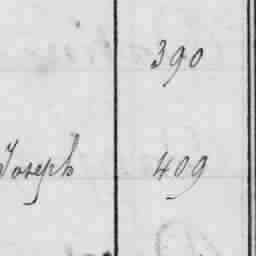 390
Joseph 409